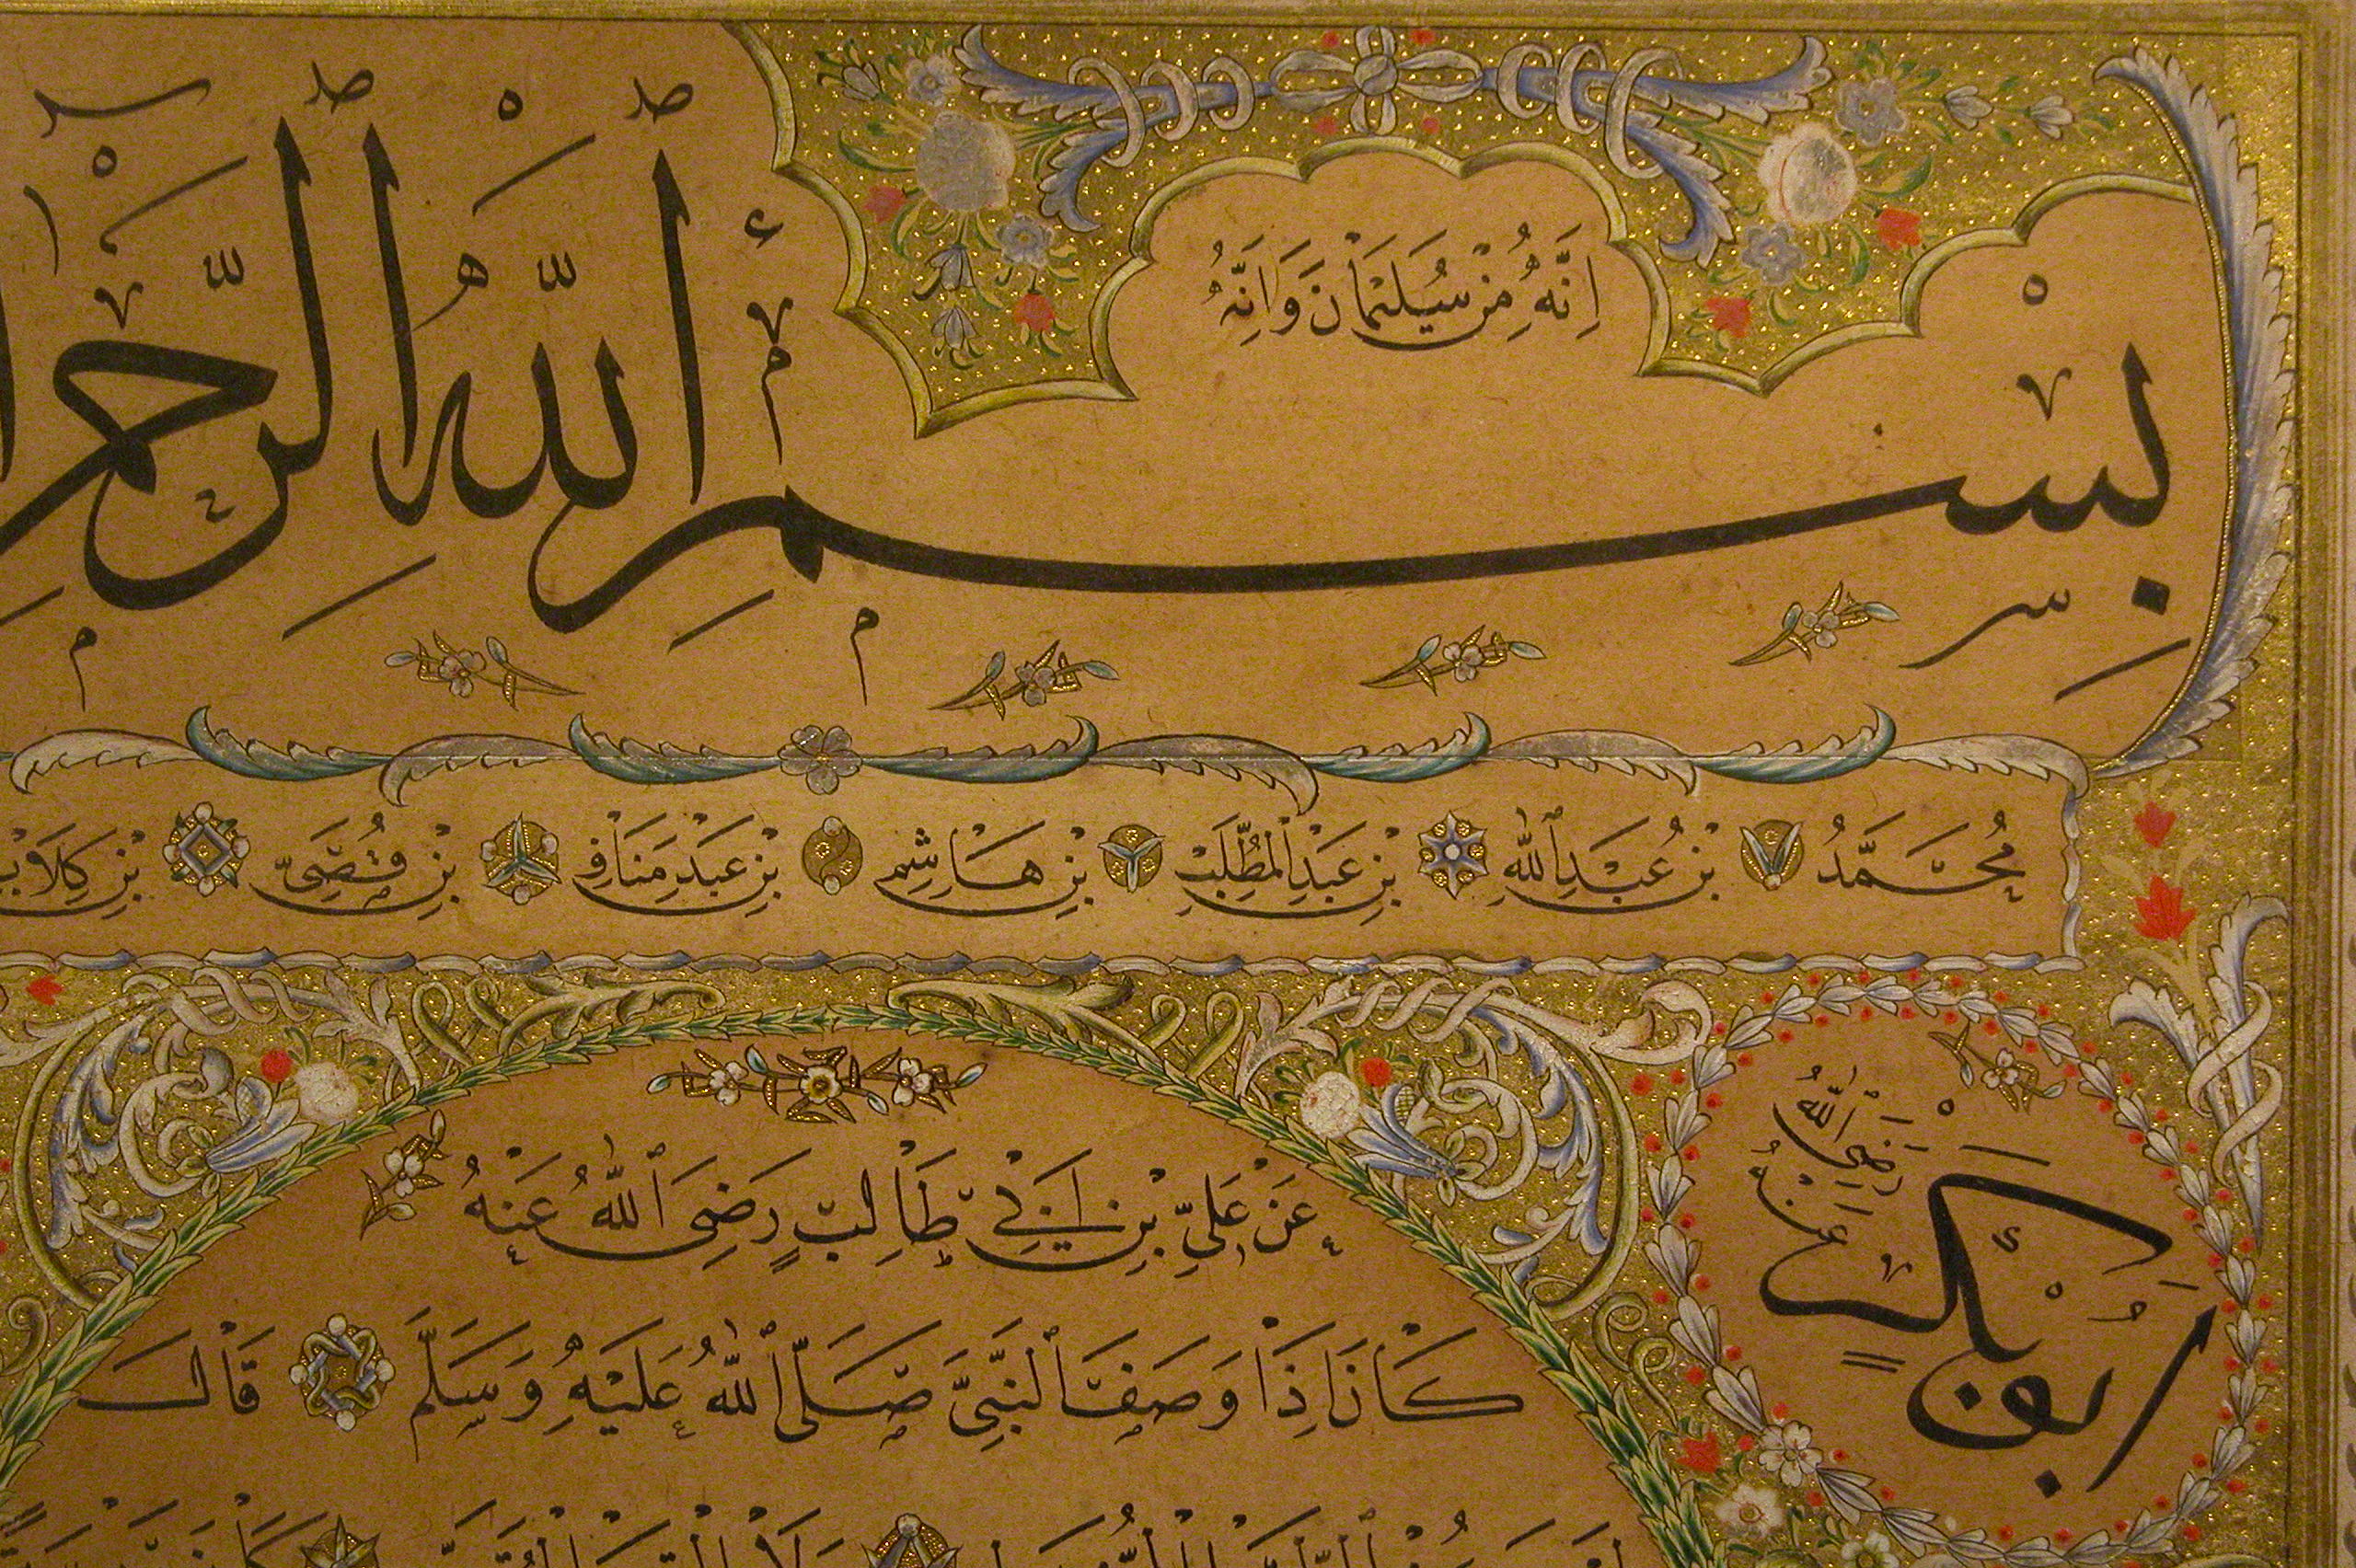 اِنَّهُ مِنْ سُلَيْمَانَ وَاِنَّهُ
بِسْمِ اللهِ الرَّحْمٰ
مُحَمَّدُ بْنُ عَبْدِ اللهِ بْنِ عَبْدِ الْمُطَّلِبِ بْنِ هَاشِمِ بْنِ عَبْدِ مَنَافِ بْنِ قُصَيِّ بْنِ كِلَابِ
اَبُو بَكْرٍ
رَضِيَ اللهُ عَنْهُ
عَنْ عَلِيِّ بْنِ اَبِي طَالِبٍ رَضِيَ اللهُ عَنْهُ
كَانَ اِذَا وَصَفَ النَّبِيَّ صَلَّى اللهُ عَلَيْهِ وَسَلَّمَ قَالَ